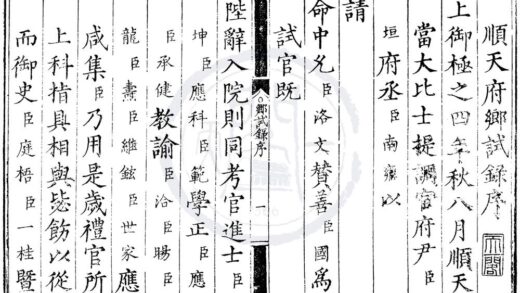 順天府鄉試錄序
上御極之四年秋八月順天
當大比士提調官府尹臣
垣府丞臣南雍以
請
命中允臣洛文贊善臣國為
試官既
鄉試錄序
一
陛辭入院則同考官進士臣
坤臣應科臣範學正臣應
臣承健教諭臣洽臣暘臣
龍臣壽臣維鉉臣世家應
咸集臣乃用是歲禮官所
上科指具相與毖飭以從
而御史臣庭梧臣一桂暨